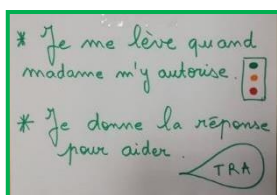 * Je me lève quand
madame m'y autorise.
* Je donne la réponse
pour aider.
TRA